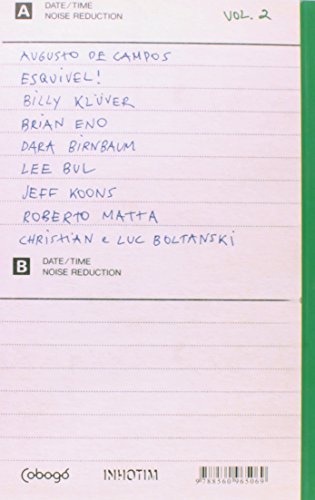 A DATE/TIME
NOISE REDUCTION
VOL. 2
AUGUSTO DE CAMPOS
ESQUIVEL!
BILLY KLÜVER
BRIAN ENO
DARA BIRNBAUM
LEE BUL
JEFF KOONS
ROBERTO MATTA
CHRISTIAN e LUC BOLTANSKI
B DATE/TIME
NOISE REDUCTION
Cobogó
INHOTIM
9788560965069